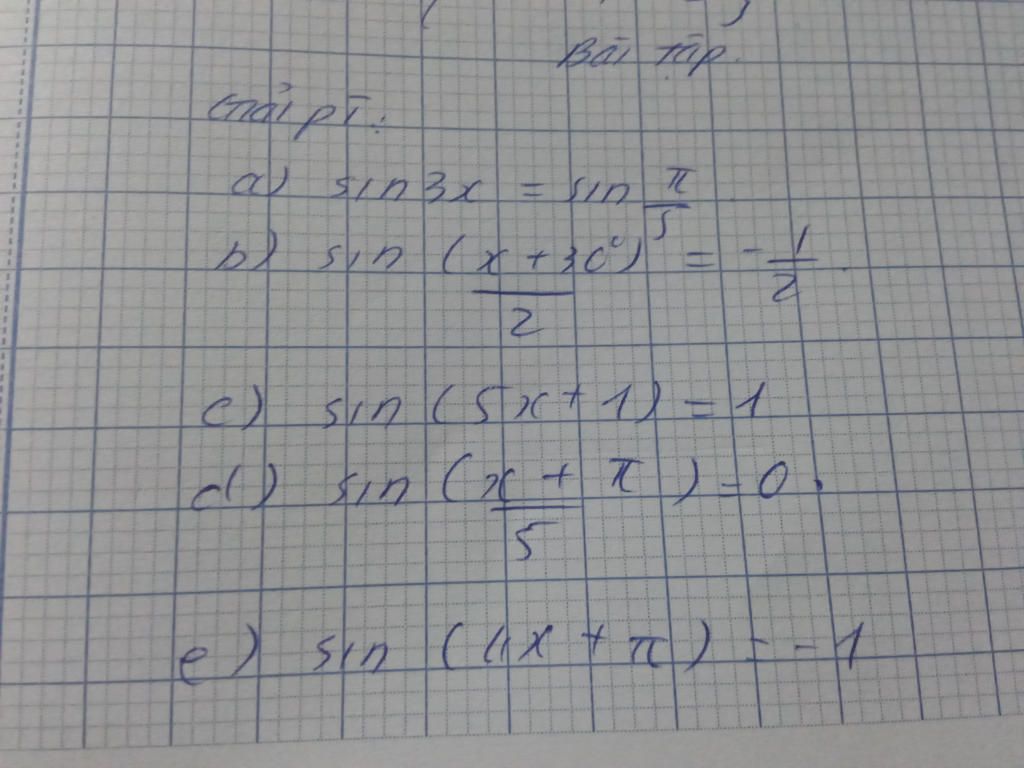 Bài tập.
Giải pt:
a) sin 3x = sin π/5
b) sin (x/2 + 30°) = -1/2.
c) sin (5x + 1) = 1
d) sin (x/5 + π) = 0.
e) sin (4x + π) = -1